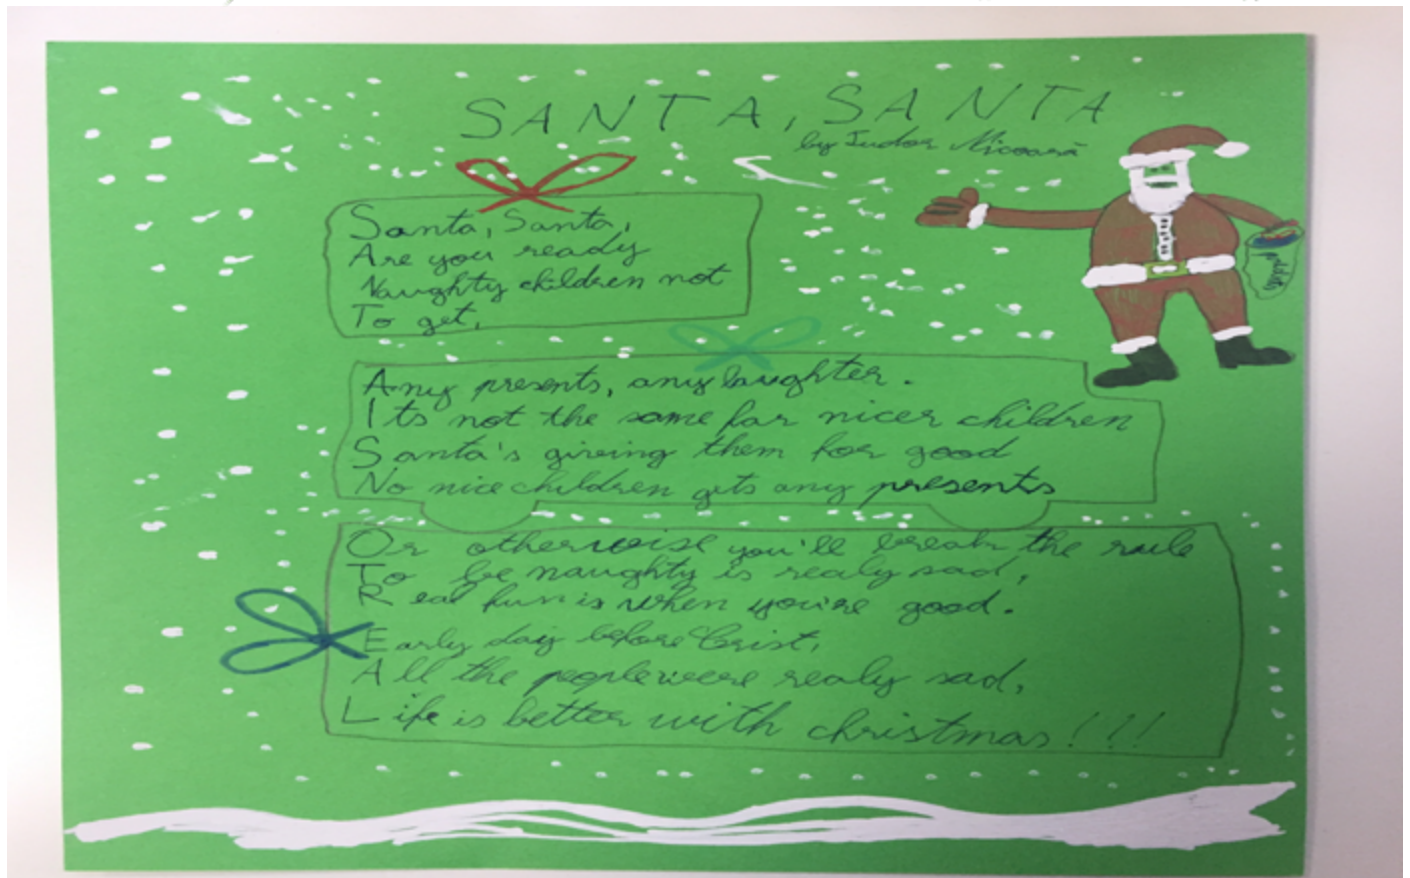 SANTA, SANTA
by Tudor Nicoară
Santa, Santa,
Are you ready
Naughty children not
To get,
Any presents, any laughter.
Its not the same for nicer children
Santa's giving them for good
No nice children gets any presents
Or otherwise you'll break the rule
To be naughty is realy sad,
Real fun is when you're good.
Early day before Crist,
All the people were realy sad,
Life is better with christmas!!!